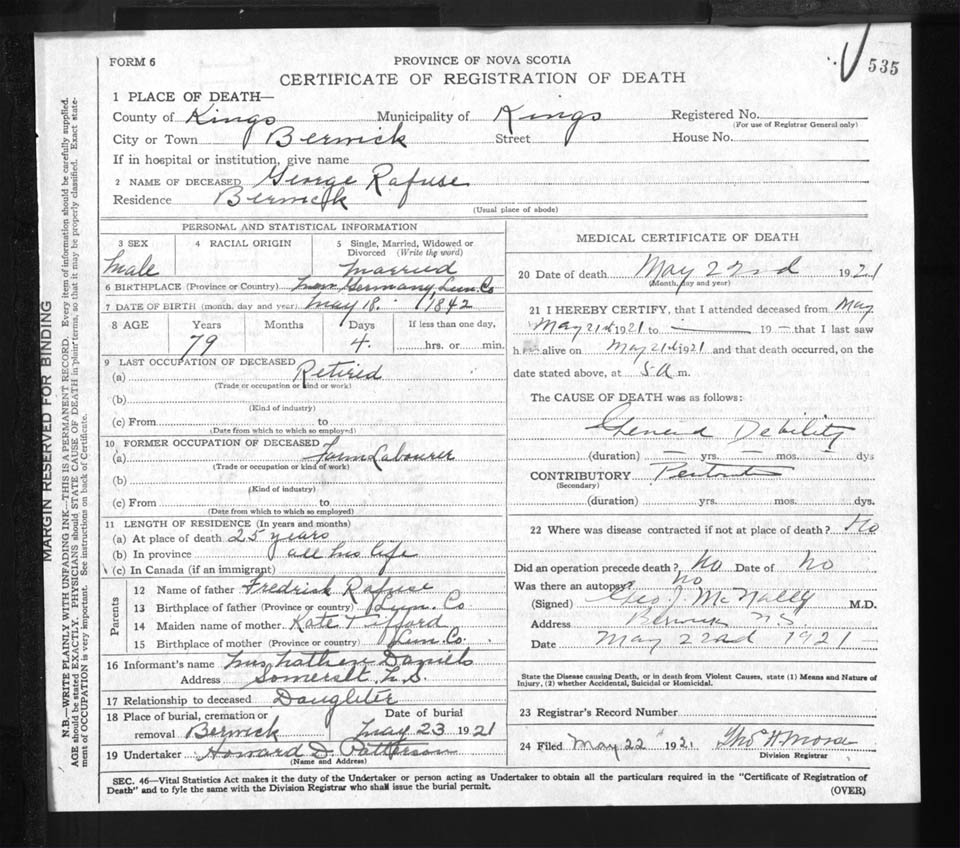 FORM 6
PROVINCE OF NOVA SCOTIA
535
CERTIFICATE OF REGISTRATION OF DEATH
1 PLACE OF DEATH—
County of Kings Municipality of Kings Registered No.
(For use of Registrar General only)
City or Town Berwick Street House No.
If in hospital or institution, give name
2 NAME OF DECEASED George Rafuse
Residence Berwick
(Usual place of abode)
PERSONAL AND STATISTICAL INFORMATION
3 SEX 4 RACIAL ORIGIN 5 Single, Married, Widowed or
Divorced (Write the word)
Male married
6 BIRTHPLACE (Province or Country) New Germany Lun. Co
7 DATE OF BIRTH (month, day and year) May 18. 1842
8 AGE Years Months Days If less than one day,
79 4. hrs. or min.
9 LAST OCCUPATION OF DECEASED
(a) Retired
(Trade or occupation or kind or work)
(b)
(Kind of industry)
(c) From to
(Date from which to which so employed)
10 FORMER OCCUPATION OF DECEASED
(a) Farm Labourer
(Trade or occupation or kind of work)
(b)
(Kind of industry)
(c) From to
(Date from which to which so employed)
11 LENGTH OF RESIDENCE (In years and months)
(a) At place of death 25 years
(b) In province all his life
(c) In Canada (if an immigrant)
Parents
12 Name of father Fredrick Rafuse
13 Birthplace of father (Province or country) Lun. Co.
14 Maiden name of mother Kate
15 Birthplace of mother (Province or country) Lun. Co.
16 Informant's name Mrs Daniels
Address Somerset, N.S.
17 Relationship to deceased Daughter
18 Place of burial, cremation or Date of burial
removal Berwick May 23 1921
19 Undertaker Howard D. Patterson
(Name and Address)
MEDICAL CERTIFICATE OF DEATH
20 Date of death May 22nd 1921
(Month, day and year)
21 I HEREBY CERTIFY, that I attended deceased from May
May 21st 1921 to — 19 — that I last saw
h alive on May 21st 1921 and that death occurred, on the
date stated above, at 5 a m.
The CAUSE OF DEATH was as follows:
General Debility
(duration) — yrs. — mos. — dys
CONTRIBUTORY
(Secondary)
(duration) yrs. mos. dys.
22 Where was disease contracted if not at place of death? No
Did an operation precede death? No Date of No
Was there an autopsy? no
(Signed) Geo. J. McNally M.D.
Address Berwick N.S.
Date May 22nd 1921
State the Disease causing Death, or in death from Violent Causes, state (1) Means and Nature of
Injury, (2) whether Accidental, Suicidal or Homicidal.
23 Registrar's Record Number
24 Filed May 22 1921 Thos H Morse
Division Registrar
SEC. 46—Vital Statistics Act makes it the duty of the Undertaker or person acting as Undertaker to obtain all the particulars required in the "Certificate of Registration of
Death" and to fyle the same with the Division Registrar who shall issue the burial permit.
(OVER)
MARGIN RESERVED FOR BINDING
N.B.—WRITE PLAINLY WITH UNFADING INK—THIS IS A PERMANENT RECORD. Every item of information should be carefully supplied.
AGE should be stated EXACTLY. PHYSICIANS should STATE CAUSE OF DEATH in plain terms, so that it may be properly classified. Exact state-
ment of OCCUPATION is very important. See instructions on back of Certificate.